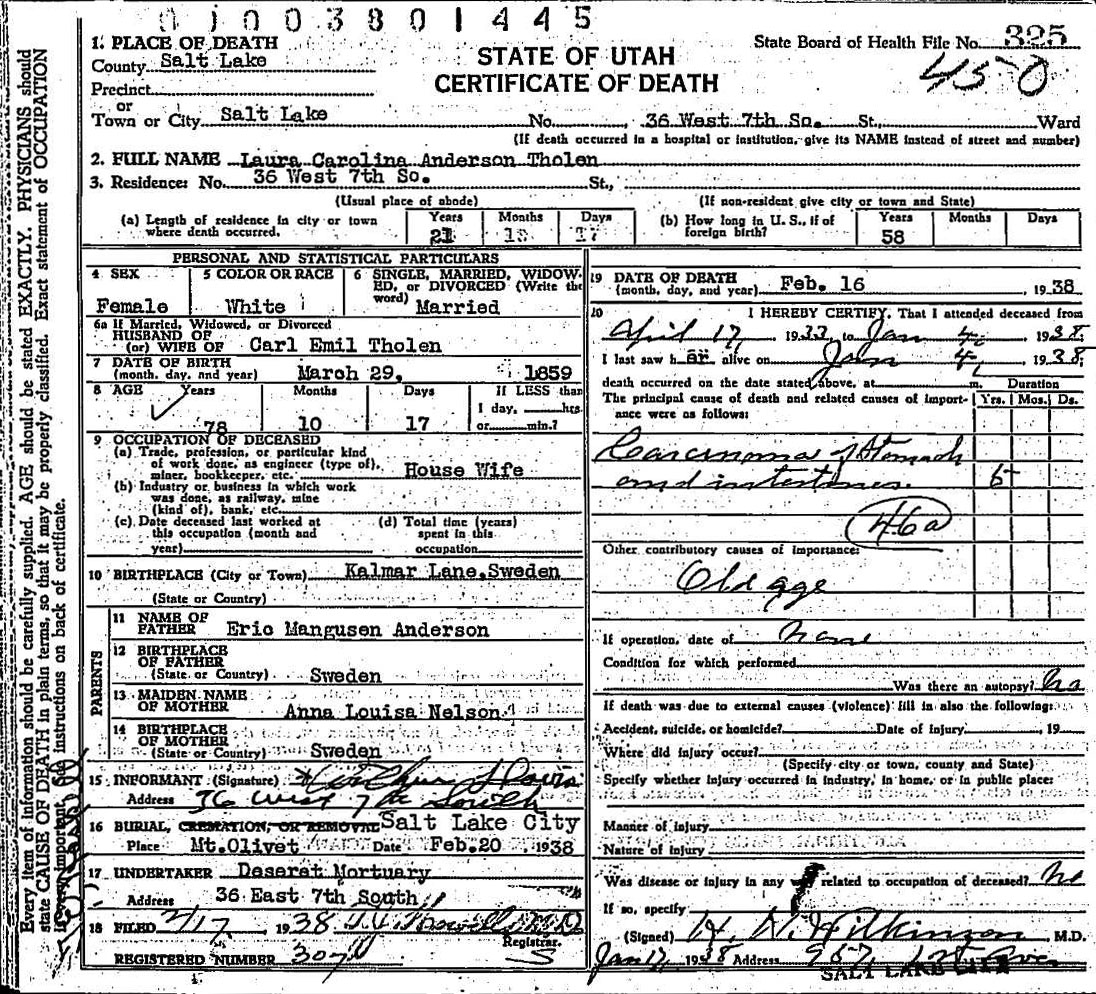 0 1 0 0 3 8 0 1 4 4 5
STATE OF UTAH
CERTIFICATE OF DEATH
State Board of Health File No. 325
450
1. PLACE OF DEATH
County Salt Lake
Precinct
or
Town or City Salt Lake No. 36 West 7th So. St. Ward
(If death occurred in a hospital or institution, give its NAME instead of street and number)
2. FULL NAME Laura Carolina Anderson Tholen
3. Residence: No. 36 West 7th So. St.,
(Usual place of abode) (If non-resident give city or town and State)
(a) Length of residence in city or town where death occurred. Years 21 Months Days 17
(b) How long in U. S., if of foreign birth? Years 58 Months Days
PERSONAL AND STATISTICAL PARTICULARS
4 SEX Female
5 COLOR OR RACE White
6 SINGLE, MARRIED, WIDOWED, OR DIVORCED (Write the word) Married
6a If Married, Widowed, or Divorced
HUSBAND OF
(or) WIFE OF Carl Emil Tholen
7 DATE OF BIRTH
(month, day, and year) March 29, 1859
8 AGE Years 78 Months 10 Days 17 If LESS than 1 day, hrs. or min.?
9 OCCUPATION OF DECEASED
(a) Trade, profession, or particular kind
of work done, as engineer (type of),
miner, bookkeeper, etc. House Wife
(b) Industry or business in which work
was done, as railway, mine
(kind of), bank, etc.
(c) Date deceased last worked at
this occupation (month and
year)
(d) Total time (years)
spent in this
occupation
10 BIRTHPLACE (City or Town) Kalmar Lane, Sweden
(State or Country)
PARENTS
11 NAME OF
FATHER Eric Mangusen Anderson
12 BIRTHPLACE
OF FATHER
(State or Country) Sweden
13 MAIDEN NAME
OF MOTHER Anna Louisa Nelson
14 BIRTHPLACE
OF MOTHER
(State or Country) Sweden
15 INFORMANT (Signature)
Address 36 West 7th South
16 BURIAL, CREMATION, OR REMOVAL Salt Lake City
Place Mt. Olivet Date Feb. 20 1938
17 UNDERTAKER Deseret Mortuary
Address 36 East 7th South
18 FILED 2/17 1938 M.D.
Registrar.
REGISTERED NUMBER 307
S
19 DATE OF DEATH
(month, day, and year) Feb. 16, 1938
20 I HEREBY CERTIFY, That I attended deceased from
April 17, 1933, to Jan 4, 1938.
I last saw her alive on Jan 4, 1938.
death occurred on the date stated above, at m. Duration
The principal cause of death and related causes of importance were as follows: Yrs. Mos. Ds.
Carcinoma of Stomach
and intestines. 5
46a
Other contributory causes of importance:
Old age
If operation, date of None
Condition for which performed
Was there an autopsy? No
If death was due to external causes (violence) fill in also the following:
Accident, suicide, or homicide? Date of injury 19
Where did injury occur?
(Specify city or town, county and State)
Specify whether injury occurred in industry, in home, or in public place:
Manner of injury
Nature of injury
Was disease or injury in any related to occupation of deceased? No
If so, specify
(Signed) H. N. Wilkinson, M.D.
Jan 17, 1938 Address 957 1st Ave
SALT LAKE CITY
Every item of information should be carefully supplied. AGE should be stated EXACTLY. PHYSICIANS should
state CAUSE OF DEATH in plain terms, so that it may be properly classified. Exact statement of OCCUPATION
is very important. See instructions on back of certificate.